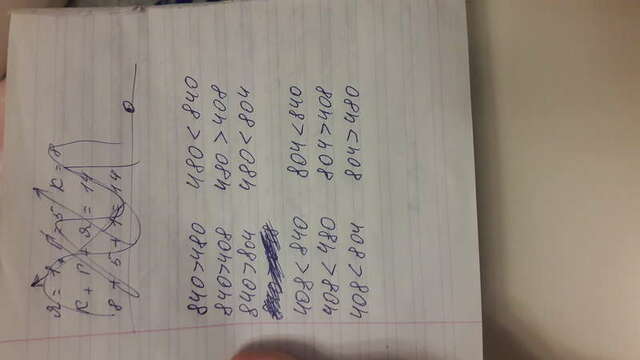 Я = 1, Г = 5 К = 8
К + Г + Я = 14
8 + 5 + 1 = 14
840>480 480<840
840>408 480>408
840>804 480<804
408<840 804<840
408<480 804>408
408<804 804>480